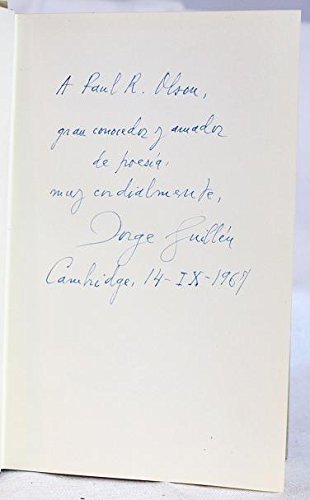 A Paul R. Olson,
gran conocedor y amador
de poesía,
muy cordialmente,
Jorge Guillén
Cambridge, 14-IX-1967